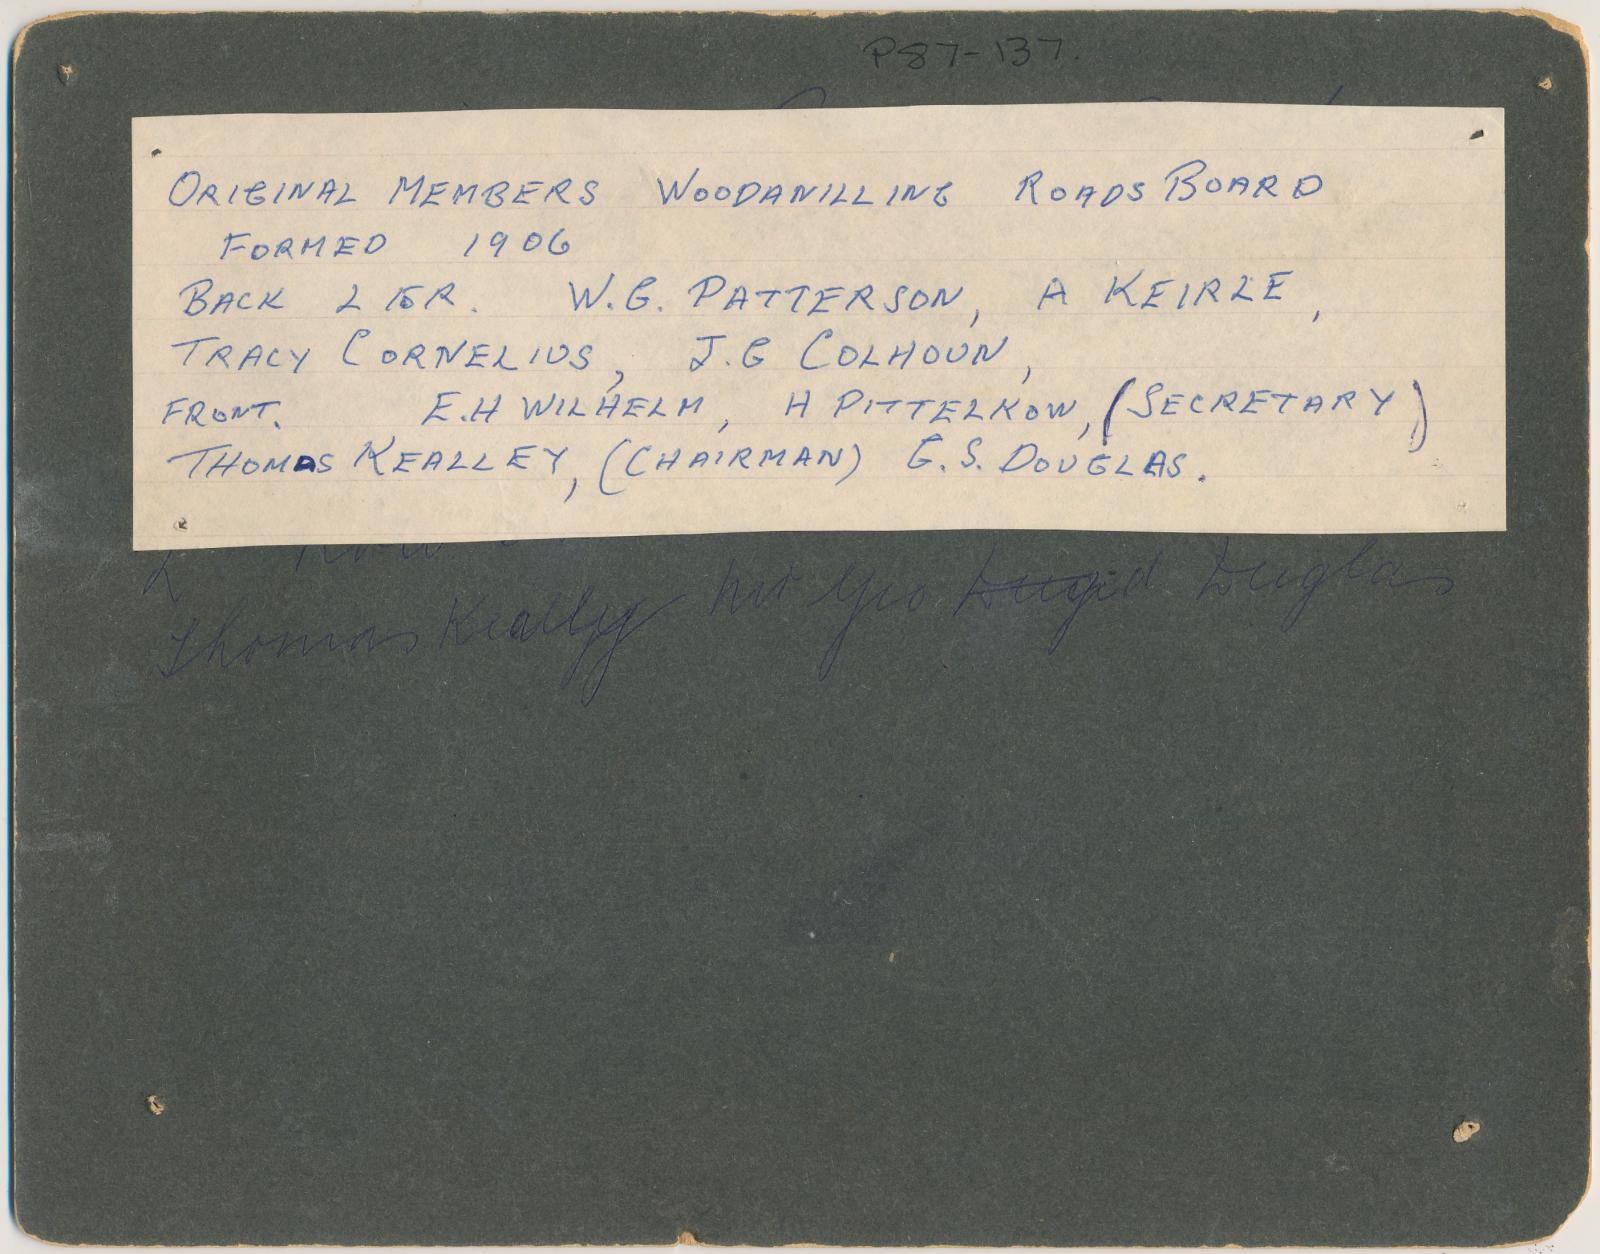 P87-137.
ORIGINAL MEMBERS WOODANILLING ROADS BOARD
FORMED 1906
BACK L TO R. W.G. PATTERSON, A KEIRLE,
TRACY CORNELIUS, J.G COLHOUN,
FRONT. E.H WILHELM, H PITTELKOW, (SECRETARY)
THOMAS KEALLEY, (CHAIRMAN) G.S. DOUGLAS.
Thomas Kealley Mr Geo Duglas